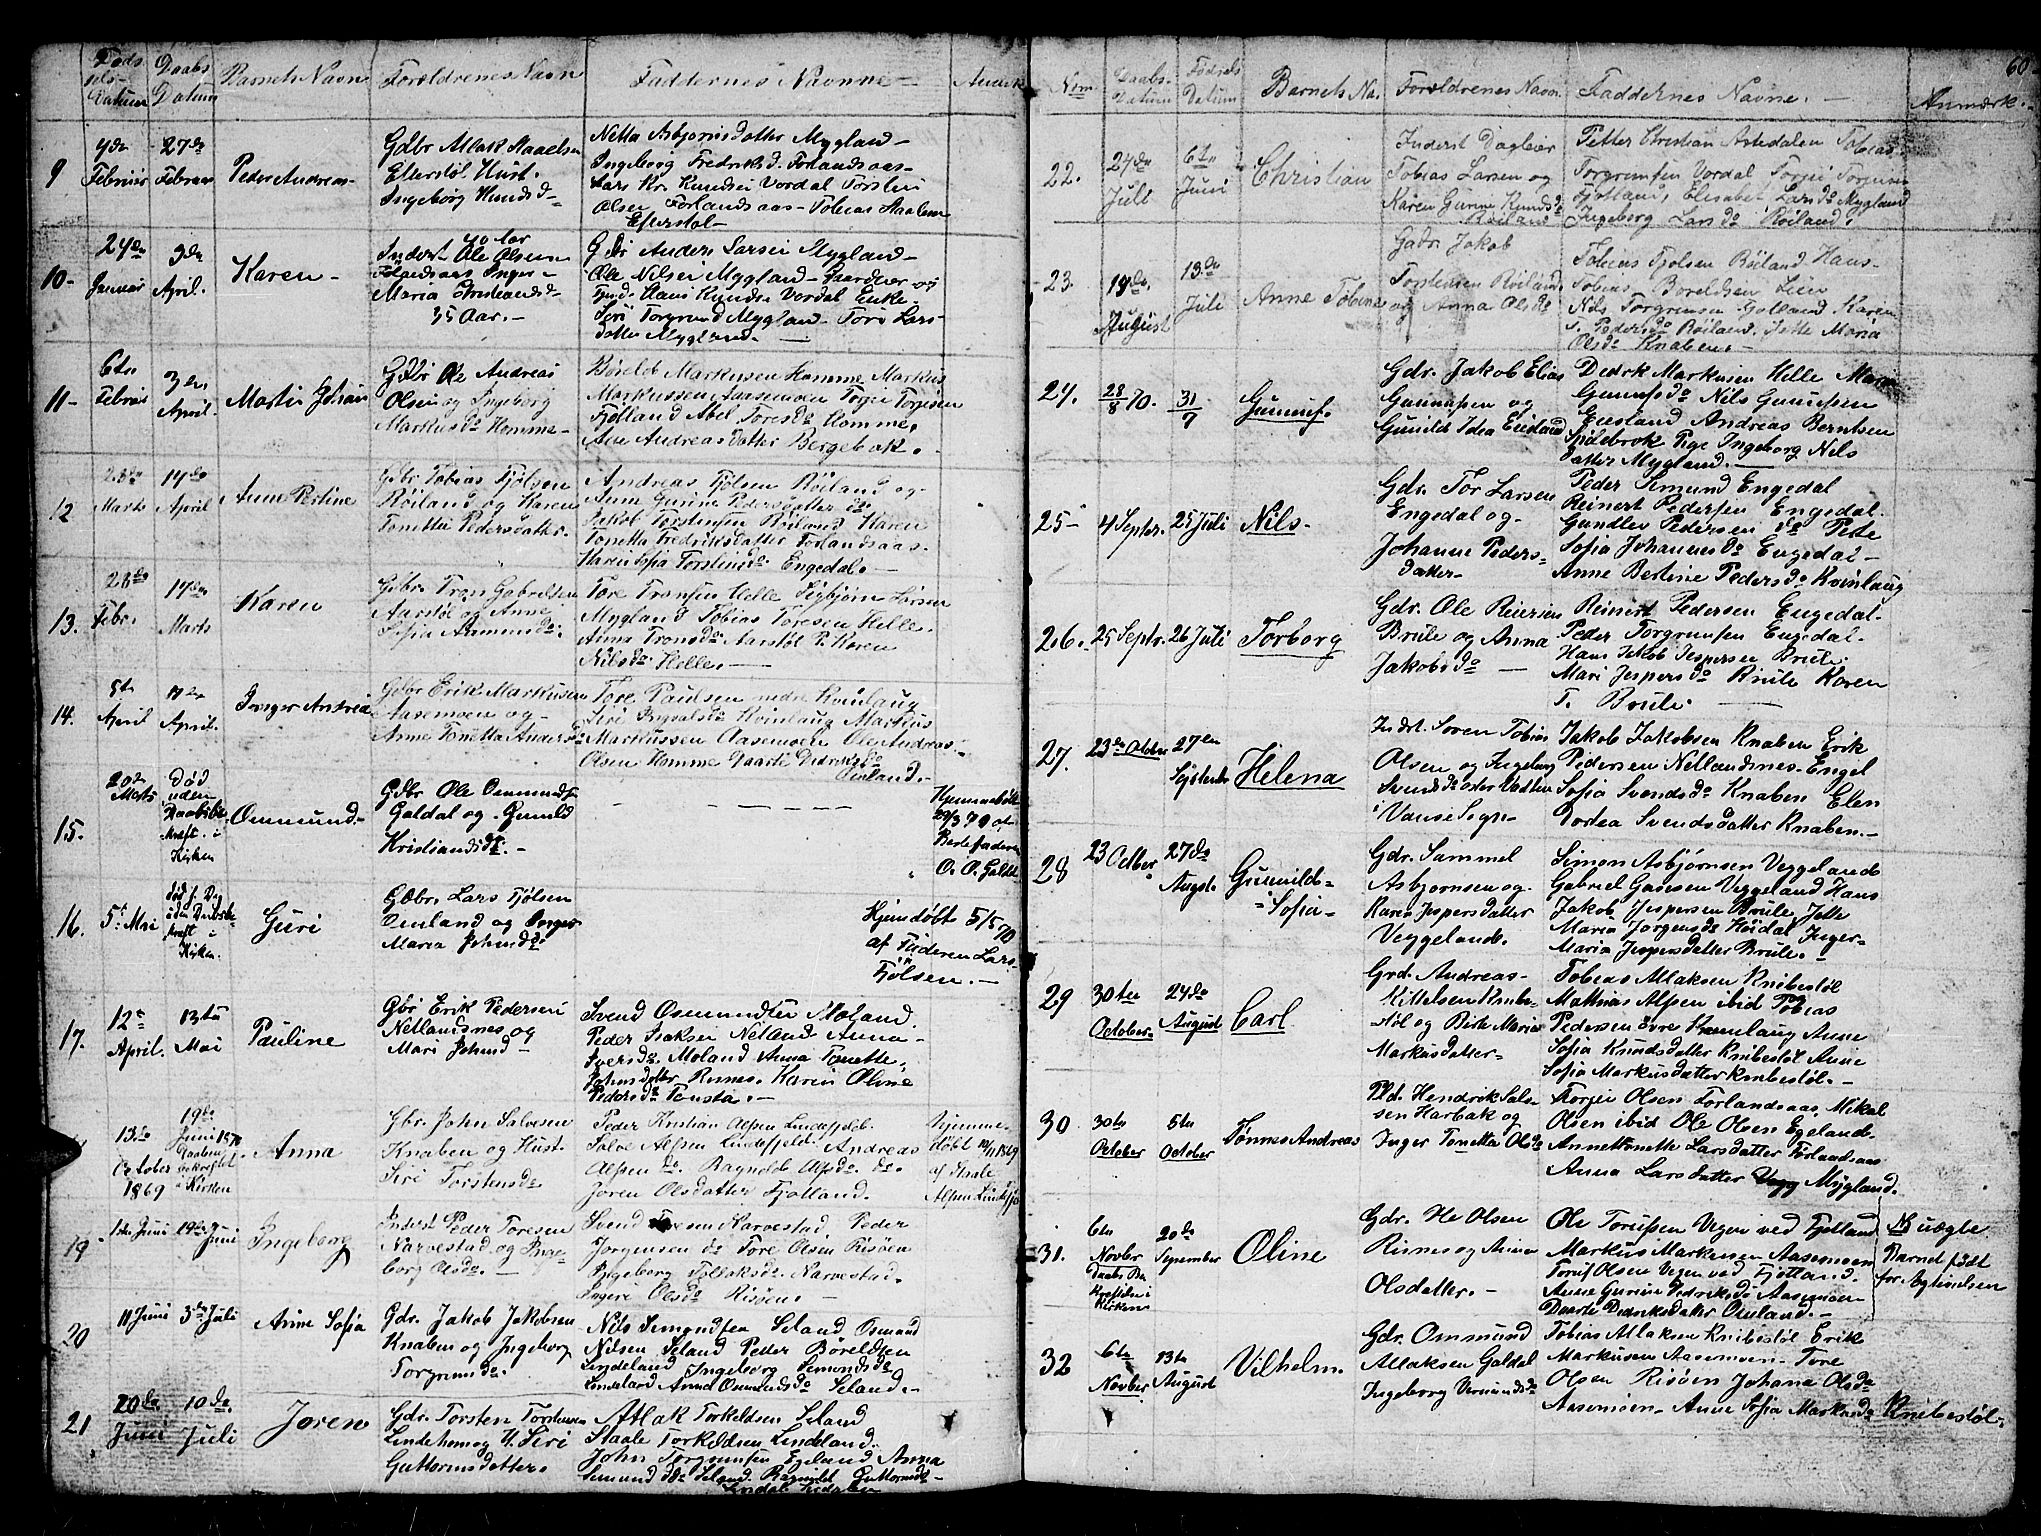 Føds
els-
Datum
Daabs
Datum
Barnets Navn
Forældrenes Navn
Faddernes Navne -
Anmærk
9
4de
Februar
27de
Februar
Peder Andreas-
Gdbr Atlak Staaelsen
Efterstøl Hust.
Ingeborg Knudsd-
Netta Asbjornsdatter Mygland-
Ingeborg Fredriksd. Forlandsaas-
Lars Kr. Knudsen Vordal Torsten
Olsen Forlandsaas- Tobias Staalesen
Efterstøl-
10-
24de
Januar
3de
April.
Karen-
Inderst Ole Olsen
40 Aar
Forlandsaas Inger-
Maria Christiansd-
35 Aar.-
Gdbr Anders Larsen Mygland-
Ole Nilsen Mygland- Gaardner og
Hans Knudsen Vordal Enke-
Siri Torgrimsd Mygland- Tore Lars-
datter Mygland-
11-
6te
Februar
3de
April.
Martin Johan
Gdbr Ole Andreas
Olsen og Ingeborg
Markusdr Homme-
Børeld Markusen Homme Markus
Markussen Aasemoen Torger Torgisen
Fjotland Abel Toresdr Homme,
Ane Andreasdatter Bergebak.
12
23de
Marts
14de
April
Anne Bertine
Gdbr Tobias Fjølsen
Røiland og Karen
Tonette Pedersdatter.
Andreas Fjølsen Røiland og-
Anne Gurine Pedersdatter do.
Jakob Torstensen Røiland Karen
Tonetta Fredriksdatter Forlandsaas.
Karen Sofia Torstensdr. Engedal.-
13.
28de
Febr.
14de
Marts
Karen
Gdbr. Tron Gabrielsen
Aarstøl og Anne
Sofia Aanensdr.
Tore Tronsen Helle Sigbjørn Larsen
Mygland Tobias Toresen Helle.
Anna Tronsdr. Aarstøl P. Karen
Nilsdr. Helle.-
14.
5te
April
17de
April.
Inger Andrea
Gdbr Erik Markusen
Aasemoen og-
Anne Tonetta Andersdr
Tore Paulsen nedre Kvinlaug
Siri Ingvalsdr Kvinlaug Markus
Markussen Aasemoen Ole Andreas-
Olsen Homme Daarte Didriksdr
Omland.-
15.
20de
Marts
Død
uden
Daabsbe-
kræft. i
Kirken
Ommund.-
Gdbr Ole Ommundsen
Galdal og Gunild
Kristiansdr.-
Hjemmedøbt
20/3 70 af
Bedstefaderen
O. O. Galdal
16.
5te Mai
død f. Dag
uden Daabsbe-
kræft i
Kirken.
Guri
Gdbr. Lars Fjølsen
Omland og Inger
Maria Johnsdr
Hjemdøbt 5/5 70
af Faderen Lars-
Fjølsen.-
17.
12te
April.
13te
Mai
Pauline
Gbr Erik Pedersen
Netlandsnes og
Mari Johnsd-
Svend Osmundsen Moland.
Peder Isaksen Netland Anna-
Iversdr. Moland Anna Tonette-
Johnsdatter Risnes. Karen Oline
Pedersdr Tonsta.-
13de
October
1869
19de
Juni 1870
Daaben
bekræftet
i Kirken
Anna
Gbr. John Salvesen
Knaben og Hust.
Siri Torstensdr
Peder Kristian Alfsen Lindefjeld.
Salve Alfsen Lindefjeld. Andreas
Alfsen do. Ragnild Alfsdr. do.
Joren Olsdatter Fjotland.
Hjemme-
døbt
af Staale
Alfsen Lindefje
19
1te Juni
19de Juni
Ingeborg
Inderst Peder Toresen
Narvestad og Inge-
borg Olsdr.-
Svend Toresen Narvestad. Peder
Jorgensen do Tore Olsen Risøen
Ingeborg Tollaksdr. Narvestad.
Ingeri Olsdr Risøen.-
20
11 Juni
3de Juli
Anne Sofia
Gdr. Jakob Jakobsen
Knaben og Ingeborg
Torgrimsdr.
Nils Simondsen Seland Osmund
Nilsen Seland Peder Børeldsen
Lindeland Ingeborg Simondsdr
Lindeland Anna Osmundsdr Seland.-
21
20de
Juni
10de
Juli
Joren
Gdr. Torsten Torstensen
Lindehom og H. Siri
Guttormsdatter.
Atlak Torkeldsen Seland
Staale Torkeldsen Lindeland.
John Torgrimsen Egeland Anna
Simundsdr Seland. Ragnild Guttormsdr-
60
Nom
Daabs-
Datum
Fødsels
Datum
Barnets Na.
Forældrenes Navn
Faddernes Navne.-
Anmærk.
22.
24de
Juli
6te
Juni
Christian
Inderst Dagleier
Tobias Larsen og
Karen Gurine Knudsdr
Røiland
Petter Christian Aatedalen Tobias
Torgrimsen Vordal Torjer Torjusen
Fjotland, Elisabet Larsdr Mygland
Ingeborg Larsdr Røiland.
23.
19de.
August
13de
Juli
Anne Tobine
Gadr. Jakob
Torstensen Røiland
og Anna Olsdr
Tobias Fjølsen Røiland Hans-
Tobias Boreldsen Lien
Nils Torgrimsen Fjotland Karen
T. Pedersdr Røiland. Jette Maria
Olsdr Knaben.-
24.
28/8 70.
31/7
Gunnuf.
Gdr. Jakob Elias
Gunnufsen og
Gunild Idea Eiesland
Didrk Markusen Helle Maren
Gunufsdr Nils Gunufsen
Eiesland Andreas Berntsen
Sødebrok Pige Ingeborg Nils
datter Mygland.-
25-
4 Septr.
25 Juli
Nils-
Gdr. Tor Larsen
Engedal og-
Johanne Peders-
datter-
Peder Simund Engedal
Reinert Pedersen Engedal.
Gundlev Pedersen do Pete
Sofia Johannesdr Engedal-
Anne Bertine Pedersdr Kvinlaug
26.
25 Septr.
26 Juli
Torborg
Gdr. Ole Reiersen
Brule og Anna
Jakobsdr-
Reinert Pedersen Engedal-
Peder Torgrimsen Engedal-
Hans Jakob Jespersen Brule-
Mari Jespersdr Brule Karen
T. Brule-
27.
23de October
27en
September
Helena
Indst. Soren Tobias
Olsen og Ingeborg
Svendsdr Oster Vatne
i Vanse Sogn-
Jakob Jakobsen Knaben Erik
Pedersen Netlandsnes-Engel
Sofia Svendsdr Knaben Elen
Dortea Svendsdatter Knaben.-
28
23 Octber
27de
Augst.
Gunnild-
Sofia-
Gdr. Sammel
Asbjornsen og.
Karen Jespersdatter
Veggeland.
Simon Asbjørnsen Veggeland
Gabriel Gasesen Veggeland Hans
Jakob Jespersen Brule, Jette
Maria Jorgensdr Høidal Inger-
Maria Jespersdatter Brule.-
29
30te
October
24de
August
Carl
Grd. Andreas-
Kittelsen Knibe-
støl og Birte Maria
Markusdatter-
Tobias Atlaksen Knibestøl
Mathias Alfsen ibid Tobias
Pedersen øvre Kvinlaug Anne
Sofia Knudsdatter Knibestøl Anne
Sofia Markusdatter Knibestøl.-
30
30te
October
5te
October
Tønnes Andreas
Pld. Hendrik Sals-
sen Harbak og
Inger Tonetta Olsdr
Torjer Olsen Forlandsaas, Mikal
Olsen ibid Ole Olsen Egeland-
Annettonette Larsdatter Forlandsaas
Anna Larsdatter Mygland.
31.
6te
Novbr
Daabs Be
kræftelse i
Kirken
20de
September
Oline
Gdr. Ole Olsen
Risnes og Anna
Olsdatter.-
Ole Torufsen Vegen ved Fjotland
Markus Markussen Aasemoen
Toruf Olsen Vegen ved Fjotland.
Anne Gurine Didriksdr Aasemoen-
Daarte Didriksdatter Omland.-
NB uægte
Barnet født
før Ægtevielsen
32
6te
Novber
13te
August
Vilhelm
Gdr. Ommund
Atlaksen Galdal
Ingeborg Vermundsdr
Tobias Atlaksen Knibestøl Erik
Markusen Aasemoen- Tore
Olsen Risøen Johana Olsdr
Aasemoen- Anne Sofia Markusdr Knibestøl.